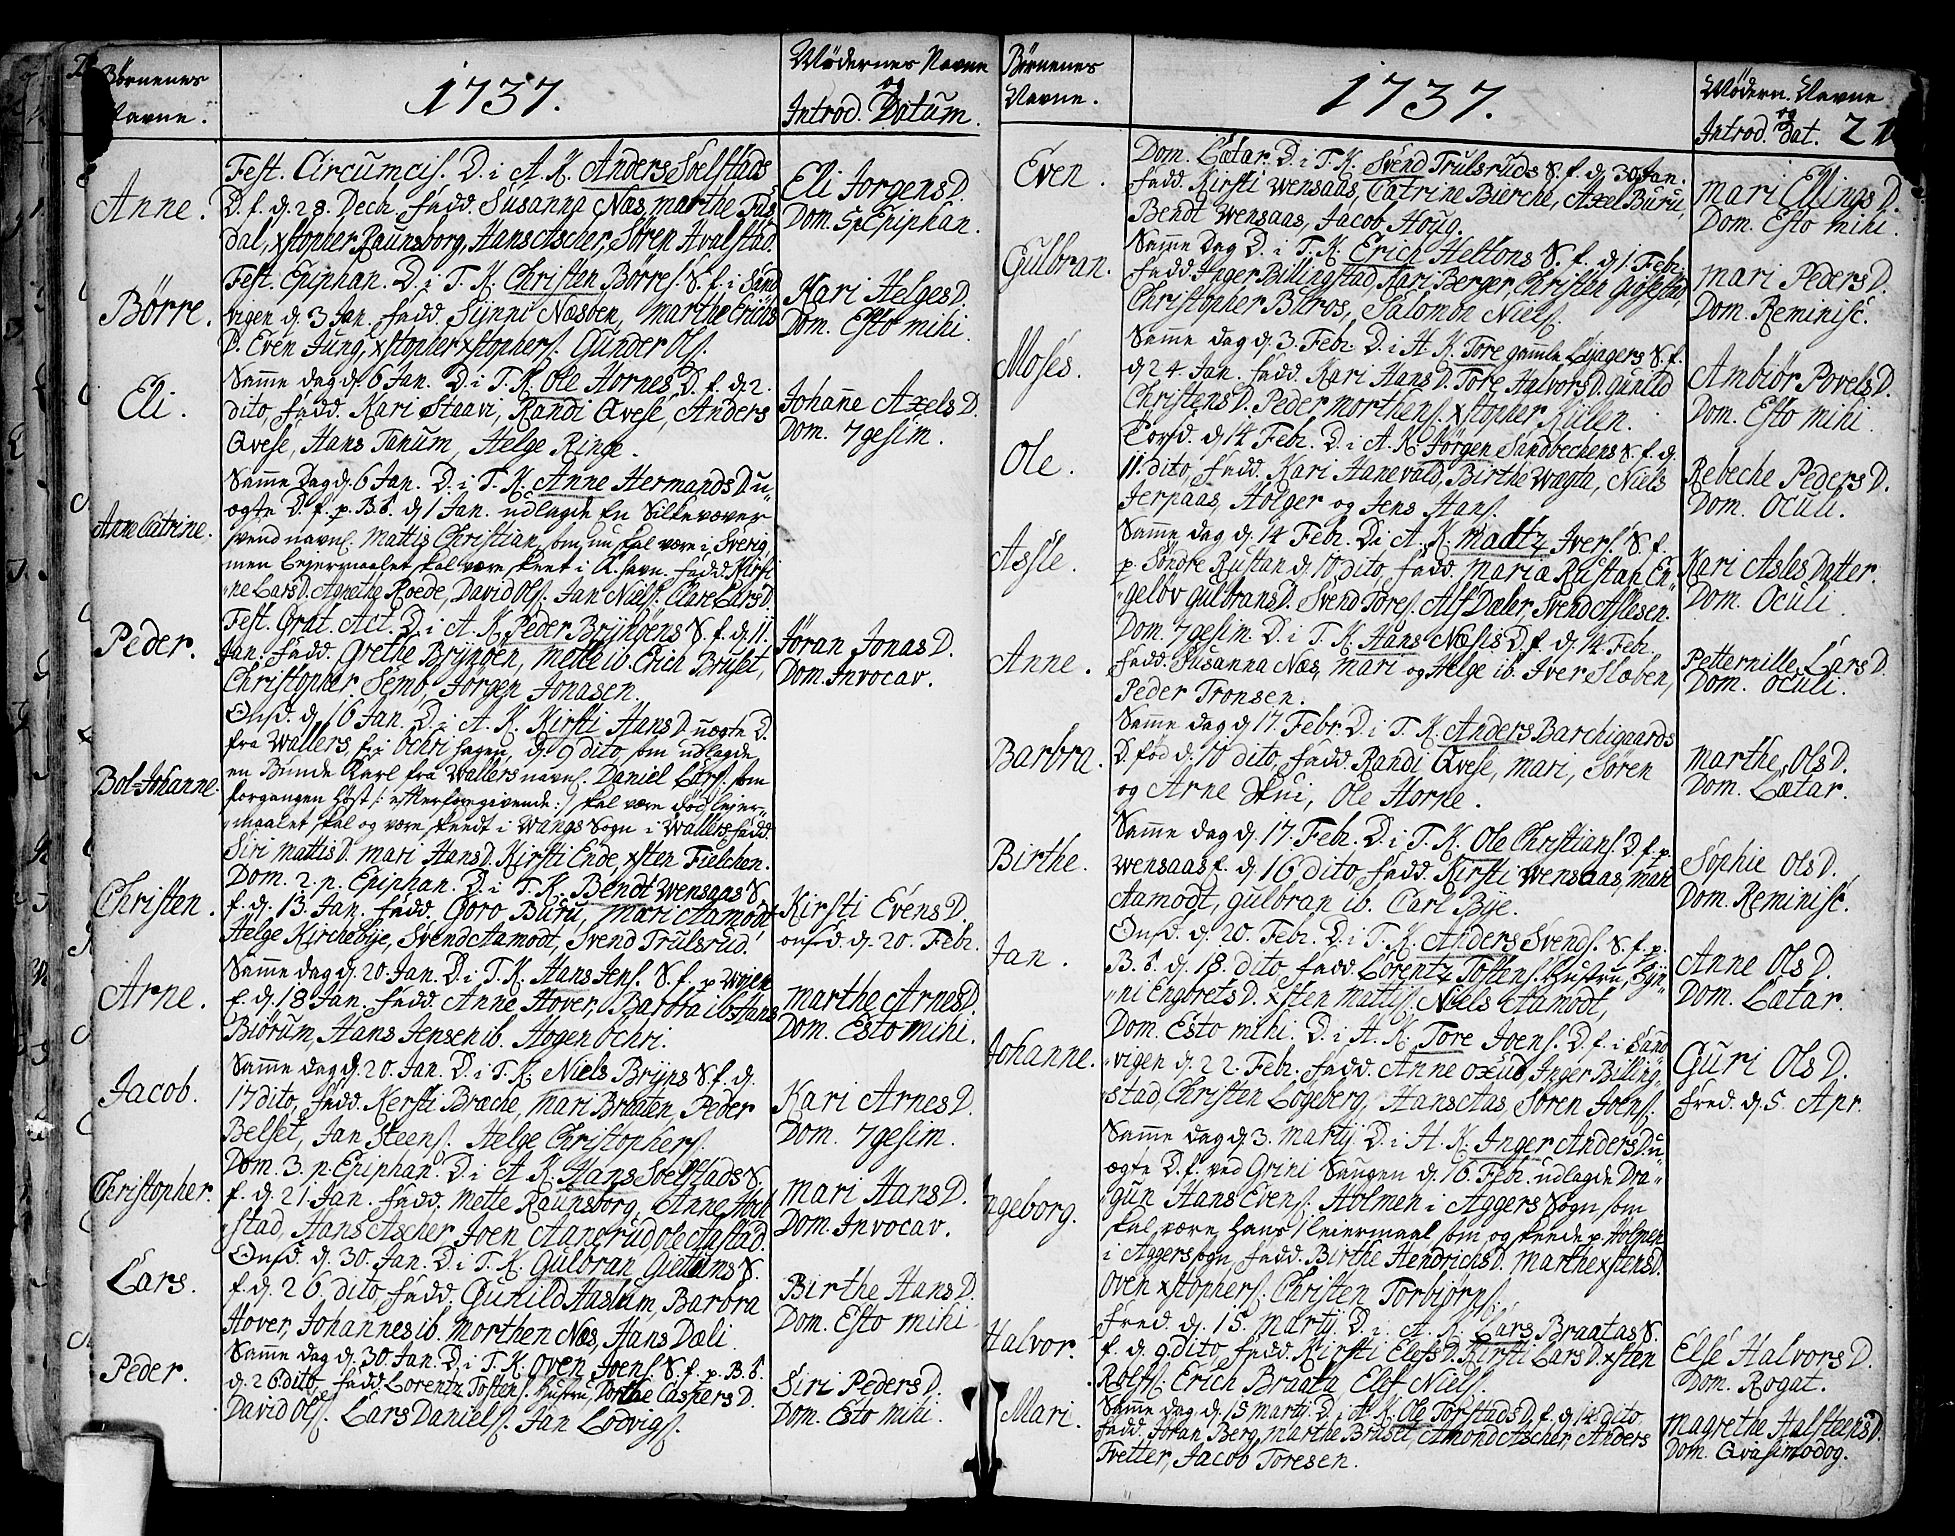 Børnenes
Navne.
1737.
Mødernes Navne
og
Introd. Datum.
Anne.
Fest. Circumcis. D. i A. K. Anders Solstads
D. f. d. 28. Decb. fadd. Susanna Næs, marthe
dal, xstopher Raunsborg, Hans Ascher, Søren Hvalstad.
Eli Jørgens D.
Dom. Sp Epiphan.
Børre.
Fest. Epiphan. D. i T. K. Christen Børres. S. f. i Sand
vigen d. 3 Jan. fadd. Siynni Næsøen, marthe Erichs
D. Even Jung, xstopher xstophers. Gunder Ols.
Kari Helges D.
Dom. Esto mihi
Eli.
Samme dag d. 6 Jan. D. i T. K. Ole Hornes D. f. d. 2.
dito, fadd. Kari Staavi, Randi Qvese, Anders
Qvese, Hans Tanum, Helge Ringe.
Johanne Axels D.
Dom. 7gesim.
Anne Catrine.
Samme Dag d. 6 Jan. D. i T. K. Anne Hermands D u,,
ægte D. f. p. B. S. d. 1 Jan. udlagde En Silkevæver
svend navnl. Mattis Christian, som nu skal være i Sverig,
men Lejermaalet skal være skeet i K.havn. fadd. Kirsti,,
ne Lars D. Agnethe Roede, David Ols. Jan Niels. Clare Lars D.
Peder.
Fest. Grat. Act. D. i A. K. Peder Bryngens S. f. d. 11.
Jan. fadd. Grethe Bryngen, Mette ib. Erich Bruset,
Christopher Semb, Jorgen Jonasen.
Jøran Jonas D.
Dom. Invocav.
Bol-Johanne.
Onsd. d. 16 Jan. D. i A. K. Kirsti Hans D uægte D.
fra Wallers, f. i Ochri hagen, d. 9 dito, som udlagde
en Bunde Karl fra Wallers navnl. Daniel Lars. som
forgangen Høst /: efter foregivende :/ skal være død, lejer,,
maalet skal og være skeedt i Wangs Sogn i Wallers, fadd.
Siri Mattis D. mari Hans D. Kirsti Ende, xsten Fielchen.
Christen.
Dom. 2. p. Epiphan. D. i T. K. Bendt Wensaas S.
f. d. 13. Jan. fadd. Goro Buru, Mari Aamodt
Helge Kirchebije, Svend Aamodt, Svend Trulsrud.
Kirsti Evens D.
onsd. d. 20. Febr.
Arne.
Samme dag d. 20. Jan. D. i T. K. Hans Jens. S. f. p. Wøjen
f. d. 18 Jan. fadd. Anne Hover, Barbra ib. Hans
Biørum, Hans Jensen ib. Hogen Ochri.
marthe Arnes D
Dom. Esto mihi.
Jacob.
Samme dag d. 20. Jan. D. i T. K. Niels Bryns S. f. d.
17 dito, fadd. Kersti Bræche, Mari Braaten, Peder
Belset, Jan Steens. Helge Christophers.
Kari Arnes D.
Dom. 7gesim.
Christopher.
Dom. 3. p. Epiphan. D. i A. K. Hans Solstads S.
f. d. 21 Jan. fadd. Mette Raunsborg, Anne Hoch
,,stad, Hans Ascher, Joen Aanerud, Ole Aastad.
Mari Hans D.
Dom. Invocav.
Lars.
Onsd. d. 30. Jan. D. i T. K. Gulbran S.
f. d. 26. dito fadd. Gunild Haslum, Barbra
Hover, Johannes ib. Morthen Næs, Hans Dæli
Birthe Hans D.
Dom. Esto mihi
Peder.
Samme dag d. 30. Jan. D. i T. K. Oven Joens. S. f. p. B. S.
d. 26 dito, fadd. Lorentz Tostens. Hustru, Dorthe Caspers D.
David Ols. Lars Daniels. Jan Lodvigs.
Siri Peders D.
Dom. Esto mihi.
Børnenes
Navne.
1737.
Mødern. Navne
og
Introd. Dat. 21
Even.
Dom. Lætar. D. i T. K. Svend Trulsruds S. f. d. 30 Jan.
fadd. Kirsti Wensaas, Catrine Bierche, Axel Buru,
Bendt Wensaas, Jacob Houg.
Mari Ellings D.
Dom. Esto mihi.
Gulbran.
Samme Dag D. i T. K. Erich Heltons S. f. d. 1. Febr.
fadd. Inger Billingstad, Kari Berger, Christen Giøsestad,
Christopher Buros, Salomon Niels.
Mari Peders D.
Dom. Reminisc.
Moses.
Samme dag d. 3. Febr. D. i H. K. Tore gamle Ejagers S. f.
d. 24 Jan. fadd. Kari Hans D. Tore Halvors D. gunild
Christens D. Peder Morthens. xstopher Killen.
Ambiør Povels D.
Dom. Esto mihi.
Ole.
Torsd. d. 14 Febr. D. i A. K. Jörgen Sandbechens S. f. d.
11. dito, fadd. Kari Hanevald, Birthe Wægta, Niels
Jerpaas, Holger og Jens Hans.
Rebeche Peders D.
Dom. Oculi.
Assle.
Samme dag d. 14 Febr. D. i A. K. Madtz Ivers. S. f.
p. Søndre Rustan d. 10 dito, fadd. Maria Rustan En,,
,,geløv gulbrans D. Svend Tores. Alf Dæler, Svend Aslesen.
Kari Asles Datter.
Dom. Oculi.
Anne.
Dom. 7gesim. D. i T. K. Hans Næsis D. f. d. 14. Febr.
fadd. Susanna Næs, Mari og Helge ib. Iver Slæben,
Peder Tronsen.
Petternille Lars D.
Dom. Oculi.
Barbra.
Samme dag d. 17 Febr. D. i T. K. Anders Barchigaards
D. fød d. 10 dito, fadd. Randi Qvese, Mari, Søren
og Arne Skui, Ole Horne.
Marthe Ols D.
Dom. Lætar.
Birthe.
Samme dag d. 17. Febr. D. i T. K. Ole Christians. D. f. p.
Wensaas f. d. 16 dito fadd. Kirsti Wensaas, Mari
Aamodt, gulbran ib. Carl Bije.
Sophie Ols D.
Dom. Reminisc.
Jan.
Onsd. d. 20. Febr. D. i T. K. Anders Svends. S. f. p.
B. S. d. 18. dito, fadd. Lorentz Tostens. Hustru, Syn,,
,,ni Engbrets D. xsten Mattis. Niels Aamodt,
Anne Ols D.
Dom. Lætar.
Johanne.
Dom. Esto mihi. D. i A. K. Tore Joens. D. f. i Sand
,,vigen d. 22. Febr. fadd. Anne Oxud, Inger Billing,,
stad, Christen Løgeberg, Hans Aas, Søren Joens.
Guri Ols D.
Fred. d. 5. Apr.
Ingeborg.
Samme dag d. 3. Martij. D. i H. K. Inger Anders D. u,,
ægte D. f. ved Grini Saugen d. 16. Febr. udlagde Dra,,
,,gun Hans Evens. Holmen i Aggers Sogn, som
skal være hans 1 leiermaal som og skeede p. Holmen
i Aggersogn. fadd. Birthe Hendrichs D. Marthe xstens D.
Oven xstophers. Christen Torbiørns.
Halvor.
Fred. d. 15. Martij. D. i. A. K. Lars Braatas S.
f. d. 9. dito, fadd. Kirsti Elofs D. Kirsti Lars D. xsten
Rolfs. Erich Braata, Elef Niels.
Else Halvors D.
Dom. Rogat.
Mari.
Samme dag d. 15 Martij. D. i A. K. Ole Torstads D. f. d. 14 dito,
fadd. Joran Berg, Marthe Bruset, Amond Ascher, Anders
Tretter, Jacob Toresen.
Magrethe Halstens D.
Dom. Qvasimodog.